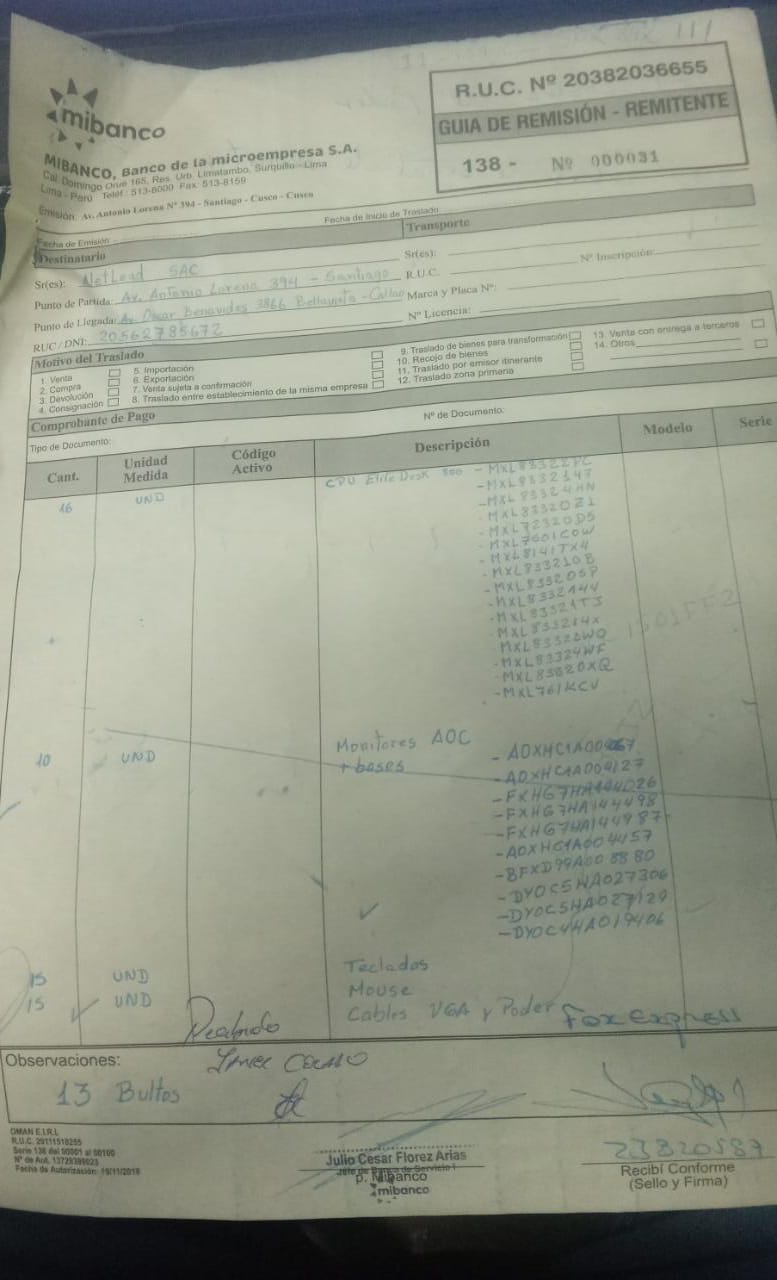 mibanco
MIBANCO, Banco de la microempresa S.A.
Cal. Domingo Orué 165, Res. Urb. Limatambo, Surquillo - Lima
Lima - Perú Teléf.: 513-8000 Fax: 513-8159
Emisión: Av. Antonio Lorena Nº 394 - Santiago - Cusco - Cusco
R.U.C. Nº 20382036655
GUIA DE REMISIÓN - REMITENTE
138 - Nº 000031
Fecha de Emisión
Fecha de Inicio de Traslado
Destinatario
Transporte
Sr(es): NetLead SAC
Sr(es):
Punto de Partida: Av. Antonio Lorena 394 - Santiago
R.U.C.
Nº Inscripción:
Punto de Llegada: Av. Oscar Benavides 3866 Bellavista - Callao
Marca y Placa Nº:
RUC/DNI: 20562785672
Nº Licencia:
Motivo del Traslado
1. Venta
2. Compra
3. Devolución
4. Consignación
5. Importación
6. Exportación
7. Venta sujeta a confirmación
8. Traslado entre establecimiento de la misma empresa
9. Traslado de bienes para transformación
10. Recojo de bienes
11. Traslado por emisor itinerante
12. Traslado zona primaria
13. Venta con entrega a terceros
14. Otros
Comprobante de Pago
Tipo de Documento:
Nº de Documento:
Cant. Unidad Medida Código Activo Descripción Modelo Serie
16 UND CPU Elite Desk 800 - MXL83322FC
- MXL8332147
- MXL83324HN
- MXL83320Z1
- MXL72320D5
- MXL7601C0W
- MXL8141TX4
- MXL833210B
- MXL83320SP
- MXL8332144
- MXL83321TJ
- MXL833214X
- MXL83320WQ
- MXL83324WF
- MXL83820XQ
- MXL761KCV
10 UND Monitores AOC
+ bases
- AOXHC1A004127
- FXHG7HA144026
- FXHG7HA144498
- FXHG7HA144987
- AOXHC1A004457
- BFXD99A008880
- DYOC5HA027306
- DYOC5HA027129
- DYOC4HA019406
15 UND Teclados
15 UND Mouse
Cables VGA y Poder
Fox express
Observaciones:
13 Bultos
OMAN E.I.R.L
R.U.C. 20111518255
Serie 138 del 00001 al 00100
Nº de Aut. 13729399023
Fecha de Autorización: 19/11/2018
Julio Cesar Florez Arias
Jefe de Banca de Servicio I
p. Mibanco
mibanco
23820587
Recibí Conforme
(Sello y Firma)